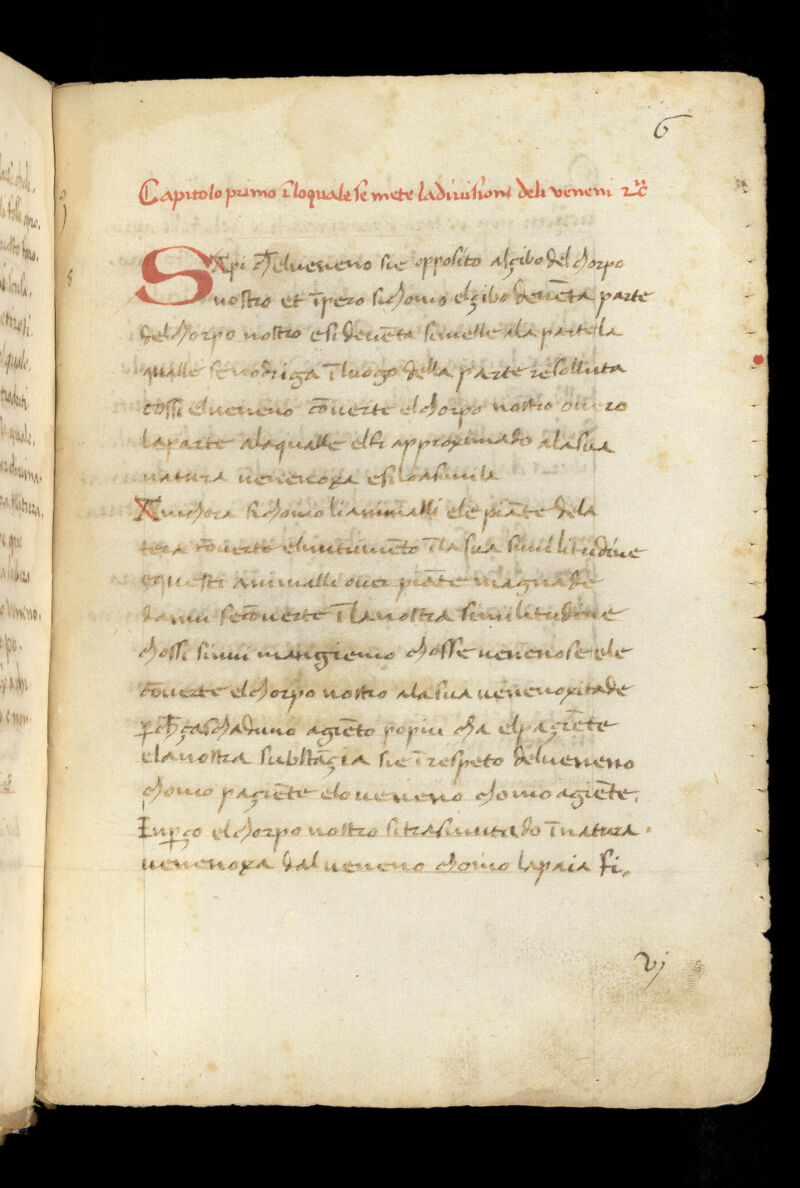 6
Capitolo primo ĩ loquale se mete la diuisione deli veneni ⁊c̃
SApi ch̃ el ueneno sie opposito al çibo del chorpo
nostro et ĩpero sichomo el çibo deuẽta parte
del chorpo nostro e si deuẽta simelle ala parte la
qualle se nodriga ĩ luogo della parte resolluta
cossi el ueneno cõuerte el chorpo nostro ouero
la parte ala qualle el si approximado ala sua
natura uenenoxa e si lo asimila
Anchora sichomo li animalli e le piãte dela
tera cõuerte el nutrimẽto ĩ la sua similitudine
e questi animalli ouer piãte magnade
da nui se cõuerte ĩ la nostra similitudine
chossi se nui mangiemo chosse uenenose ele
cõuerte el chorpo nostro ala sua uenenoxitade
ꝑch̃ çaschaduno agiẽte po piu cha el paçiẽte
e la nostra substãçia sie ĩ respeto del ueneno
chomo paçiẽte e lo ueneno chomo agiẽte.
Inꝑço el chorpo nostro si trasmutado ĩ natura
uenenoxa dal ueneno chomo la paia si
vj